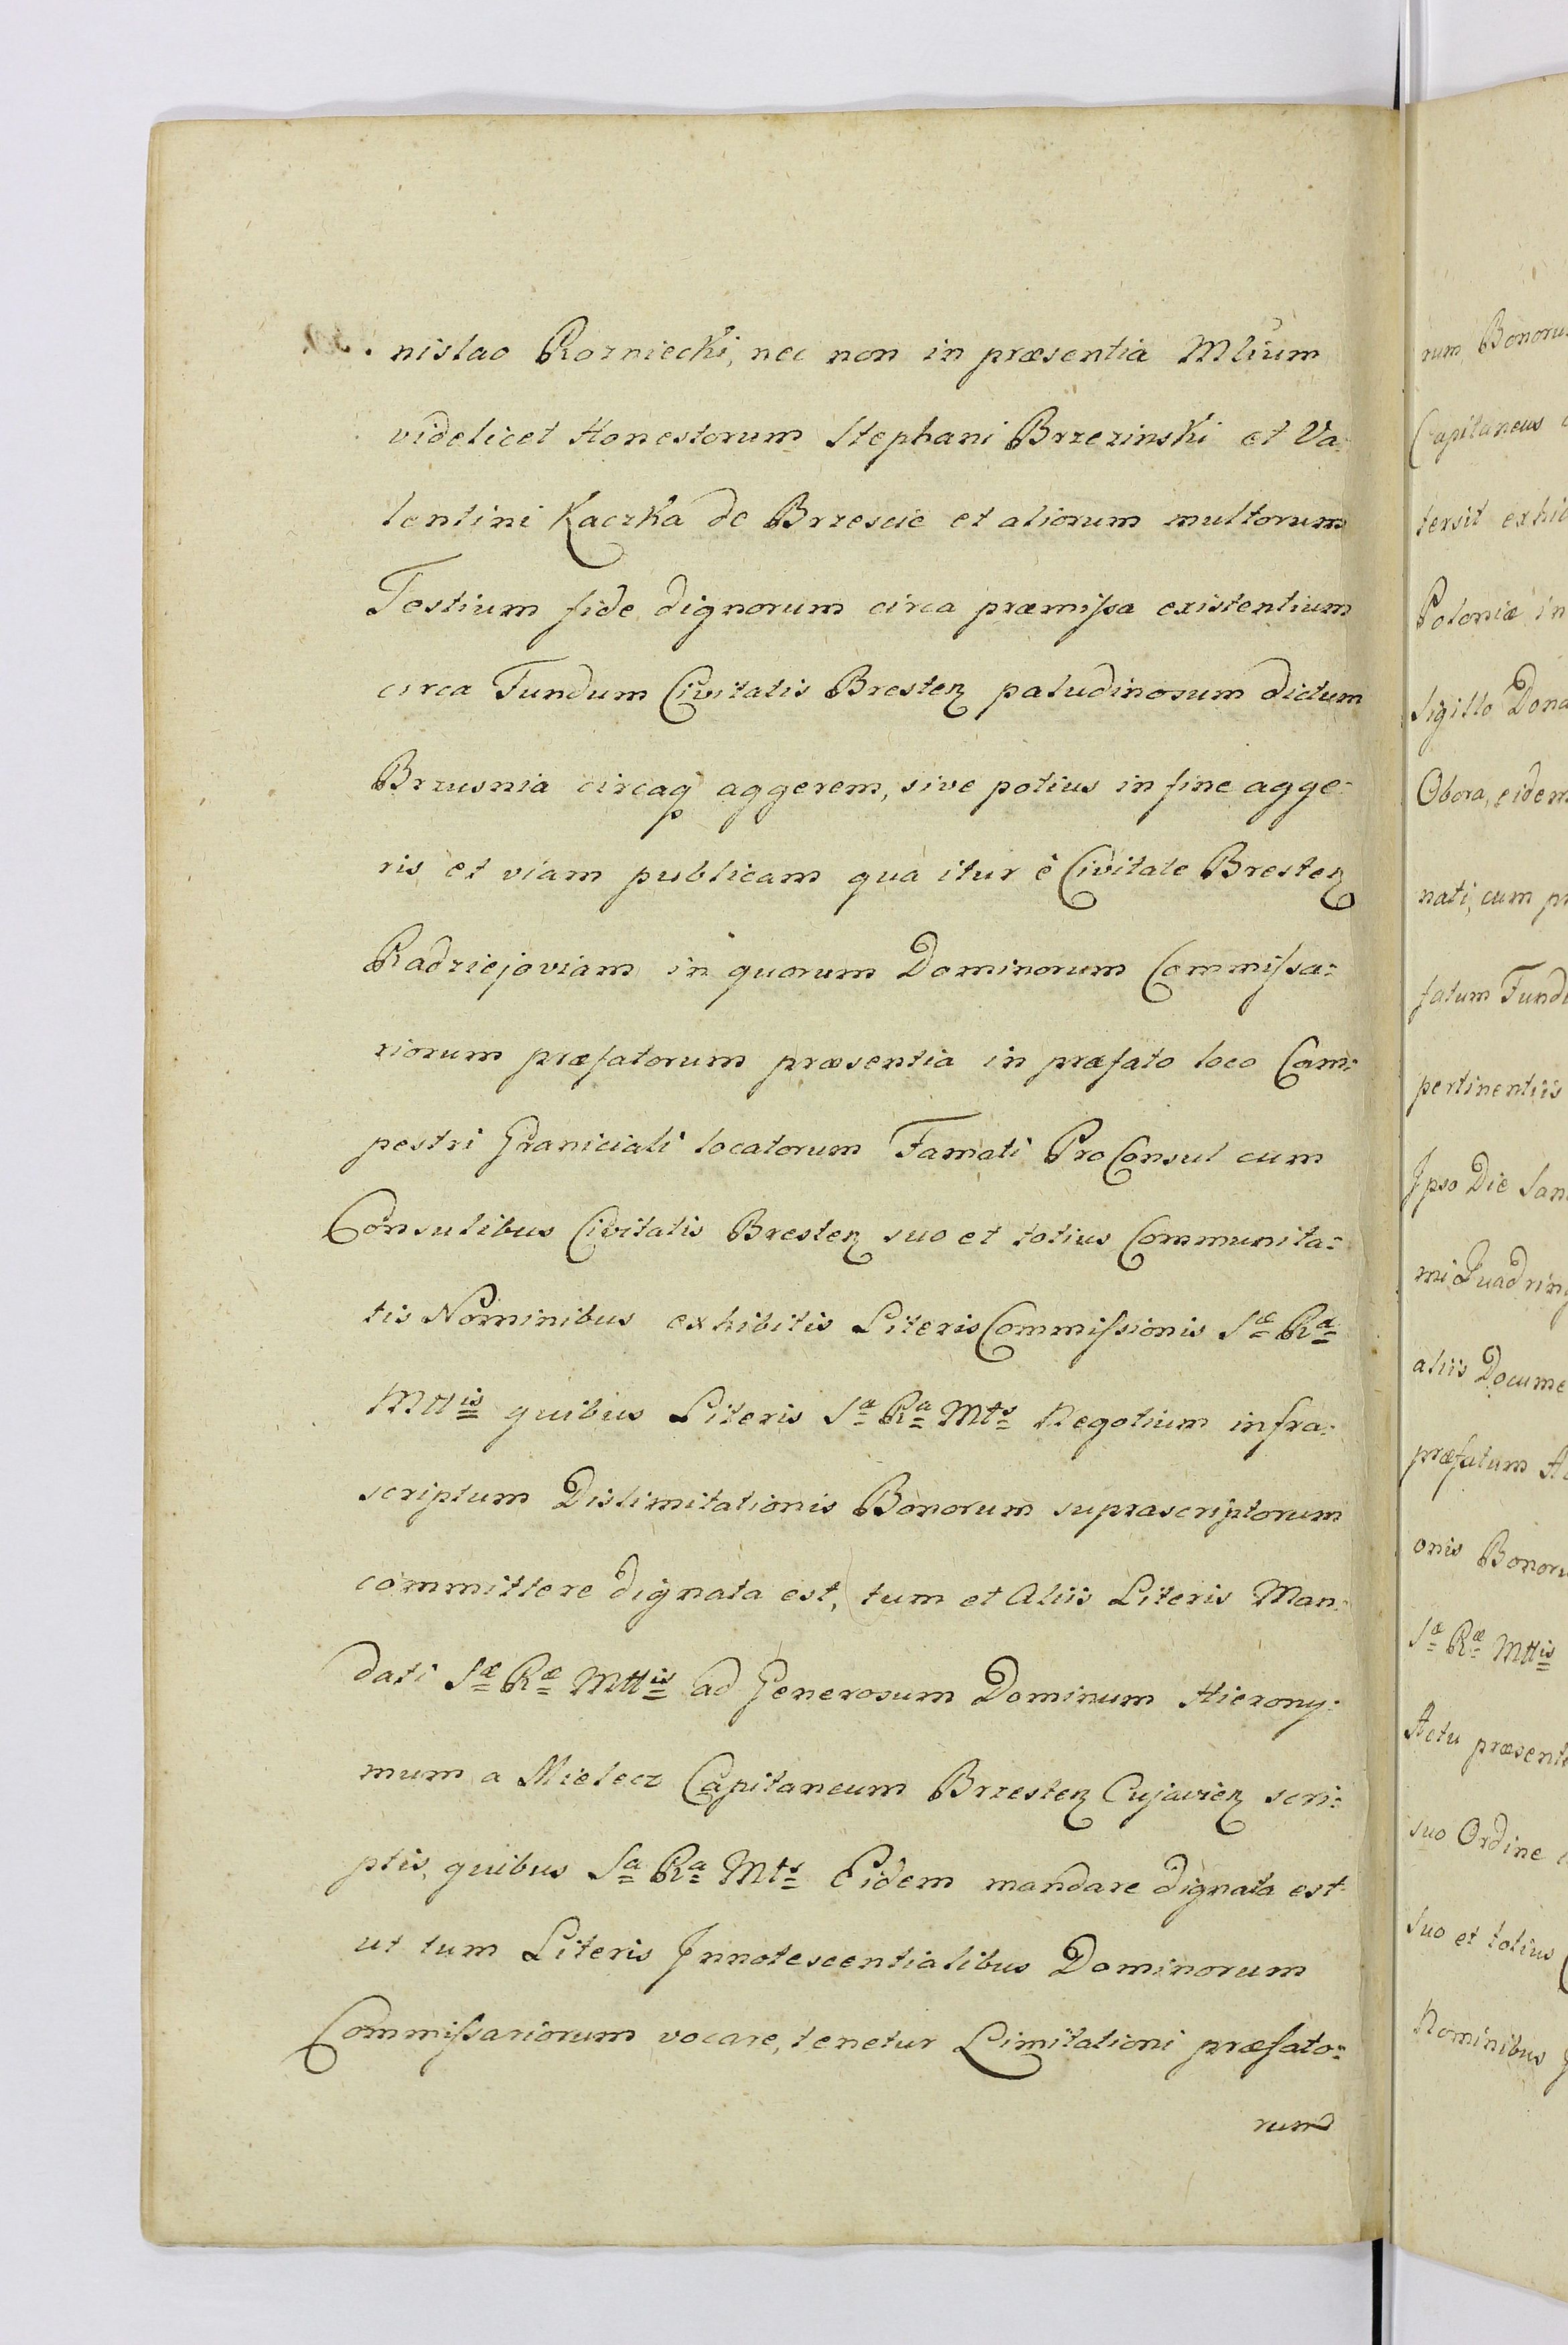 nislao Rozniecki, nec non in præsentia Mlium
videlicet Honestorum Stephani Brzezinski et Va:
lentini Kaczka de Brzescie et aliorum multorum
Testium fide dignorum circa præmiſsa existentium
circa Fundum Civitatis Bresten paludinosum dictum
Brzusnia circaq aggerem, sive potius in fine agge:
ris et viam publicam qua itur è Civitate Bresten
Radziejoviam in quorum Dominorum Commiſsa:
riorum præfatorum præsentia in præfato loco Cam:
pestri Graniciali locatorum Famati ProConsul cum
Consulibus Civitatis Bresten suo et totius Communita:
tis Nominibus exhibitis Literis Commiſsionis Sæ Ra
Mttis quibus Literis Sa Ra Mts Negotium infra:
scriptum Dislimitationis Bonorum suprascriptorum
committere dignata est, tum et Aliis Literis Man:
dati Sæ Ræ Mttis ad Generosum Dominum Hierony:
mum a Mielecz Capitaneum Brzesten Cujavien scri:
ptis, quibus Sa Ra Mts Eidem mandare dignata est
ut tum Literis Innotescentialibus Dominorum
Commiſsariorum vocare, tenetur Limitationi præfato:
rum
rum Bonoru
Capitaneus
tersit exhi
Poloniæ in
Sigillo Dona
Obora, eidem
nati, cum pr
fatum Fund
pertinentiis
Ipso Die San
mi Quadring
aliis Docume
præfatum A
onis Bonoru
Sæ Ræ Mttis
Actu præsent
suo Ordine
suo et totius
Nominibus